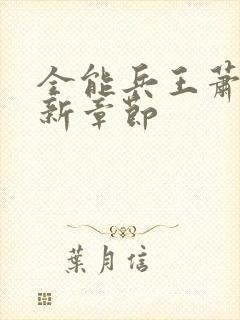 全能兵王蕭
新章節
葉月信